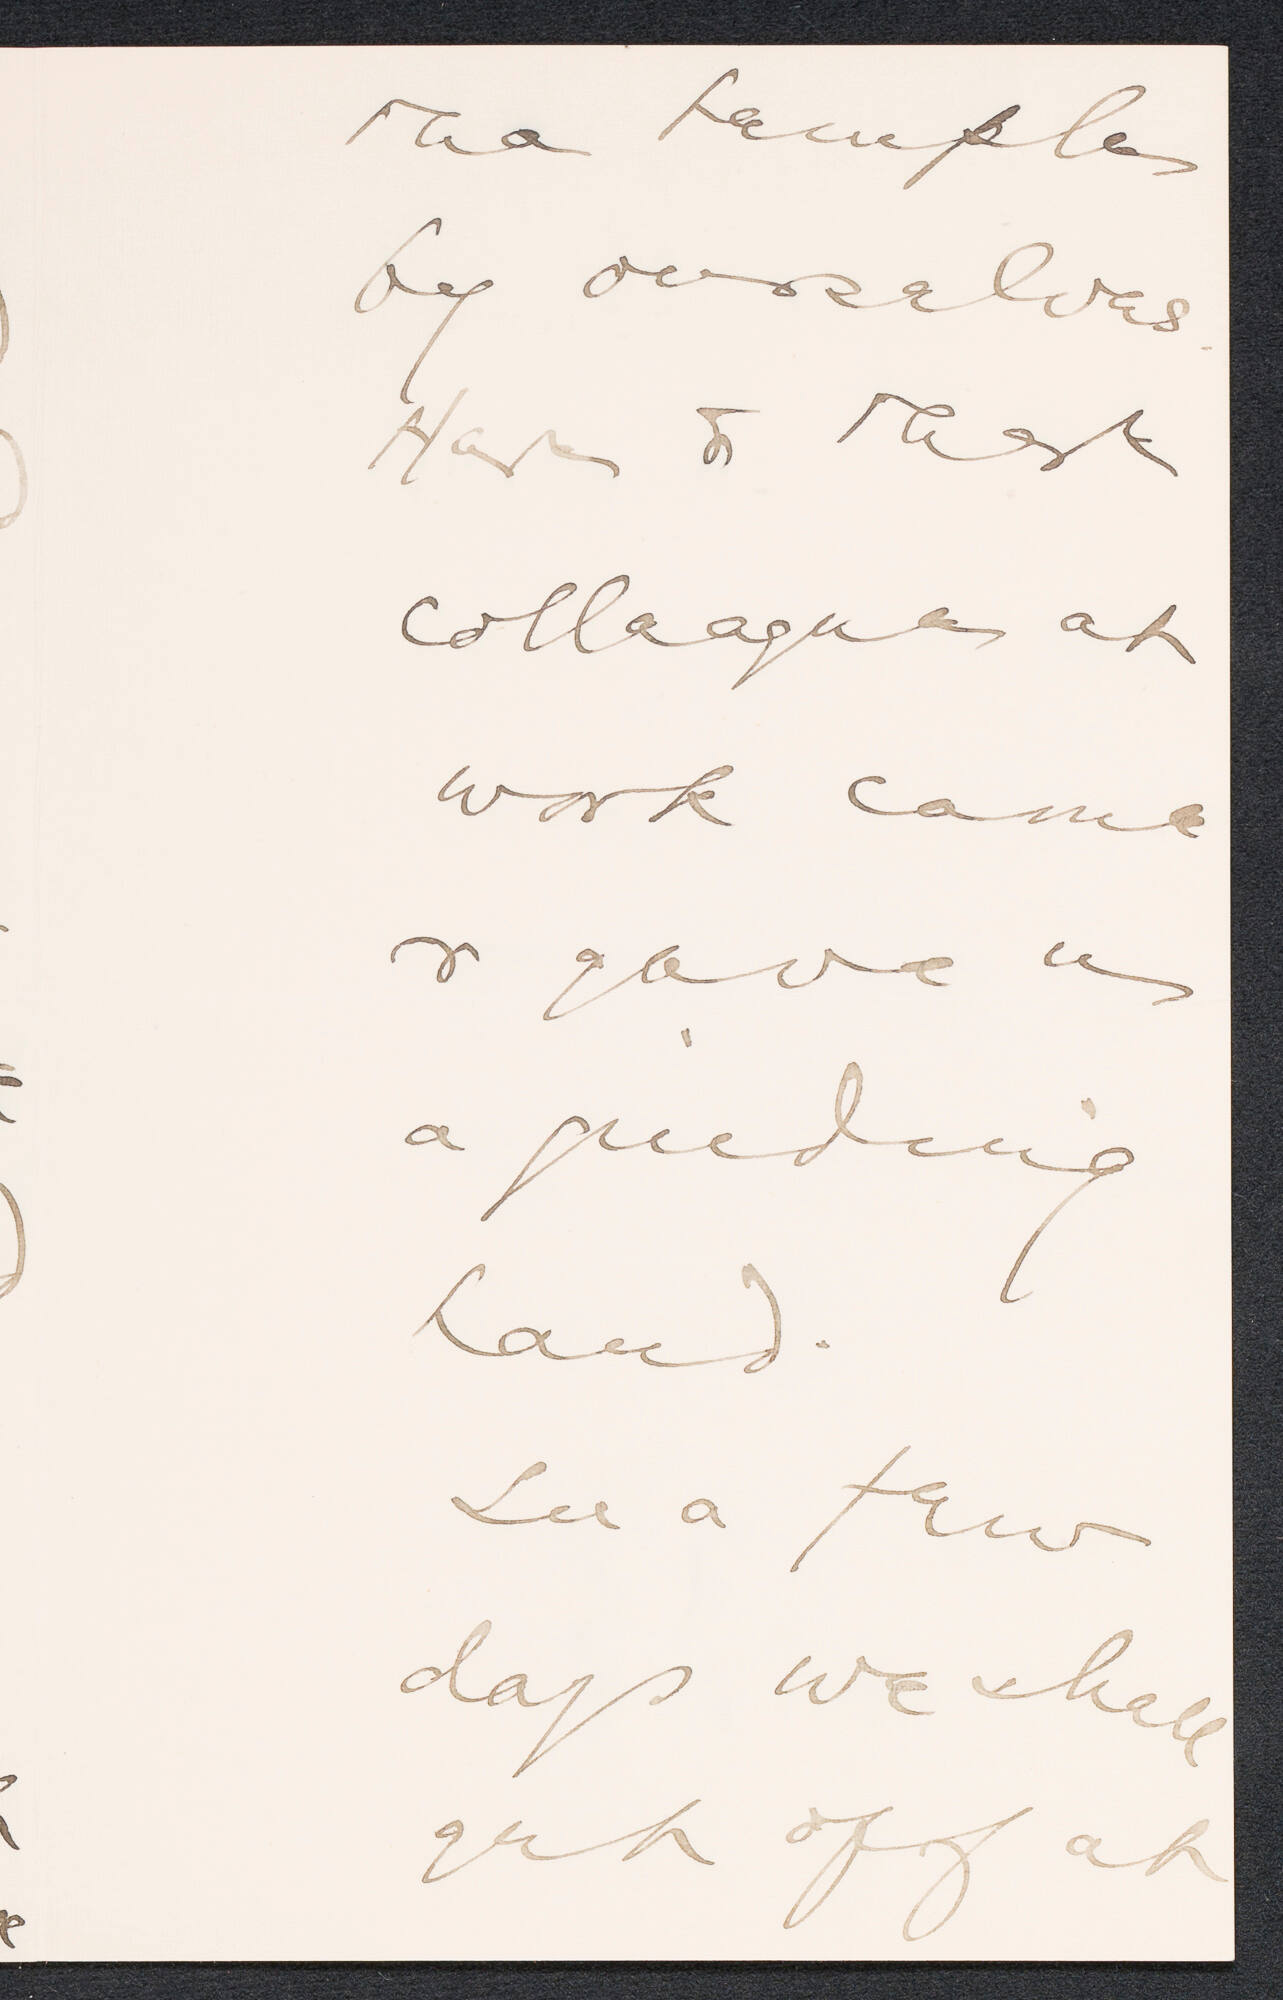 the temples
by ourselves.
& that
colleagues at
work came
& gave us
a guiding
hand.
In a few
days we shall
get off at